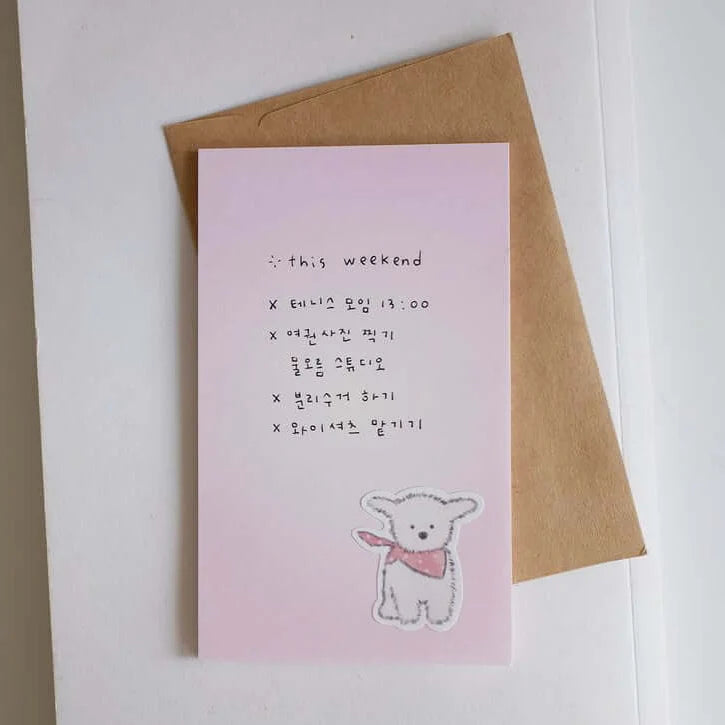 this weekend
x 테니스 모임 13:00
x 여권사진 찍기
물오름 스튜디오
x 분리수거 하기
x 와이셔츠 맡기기